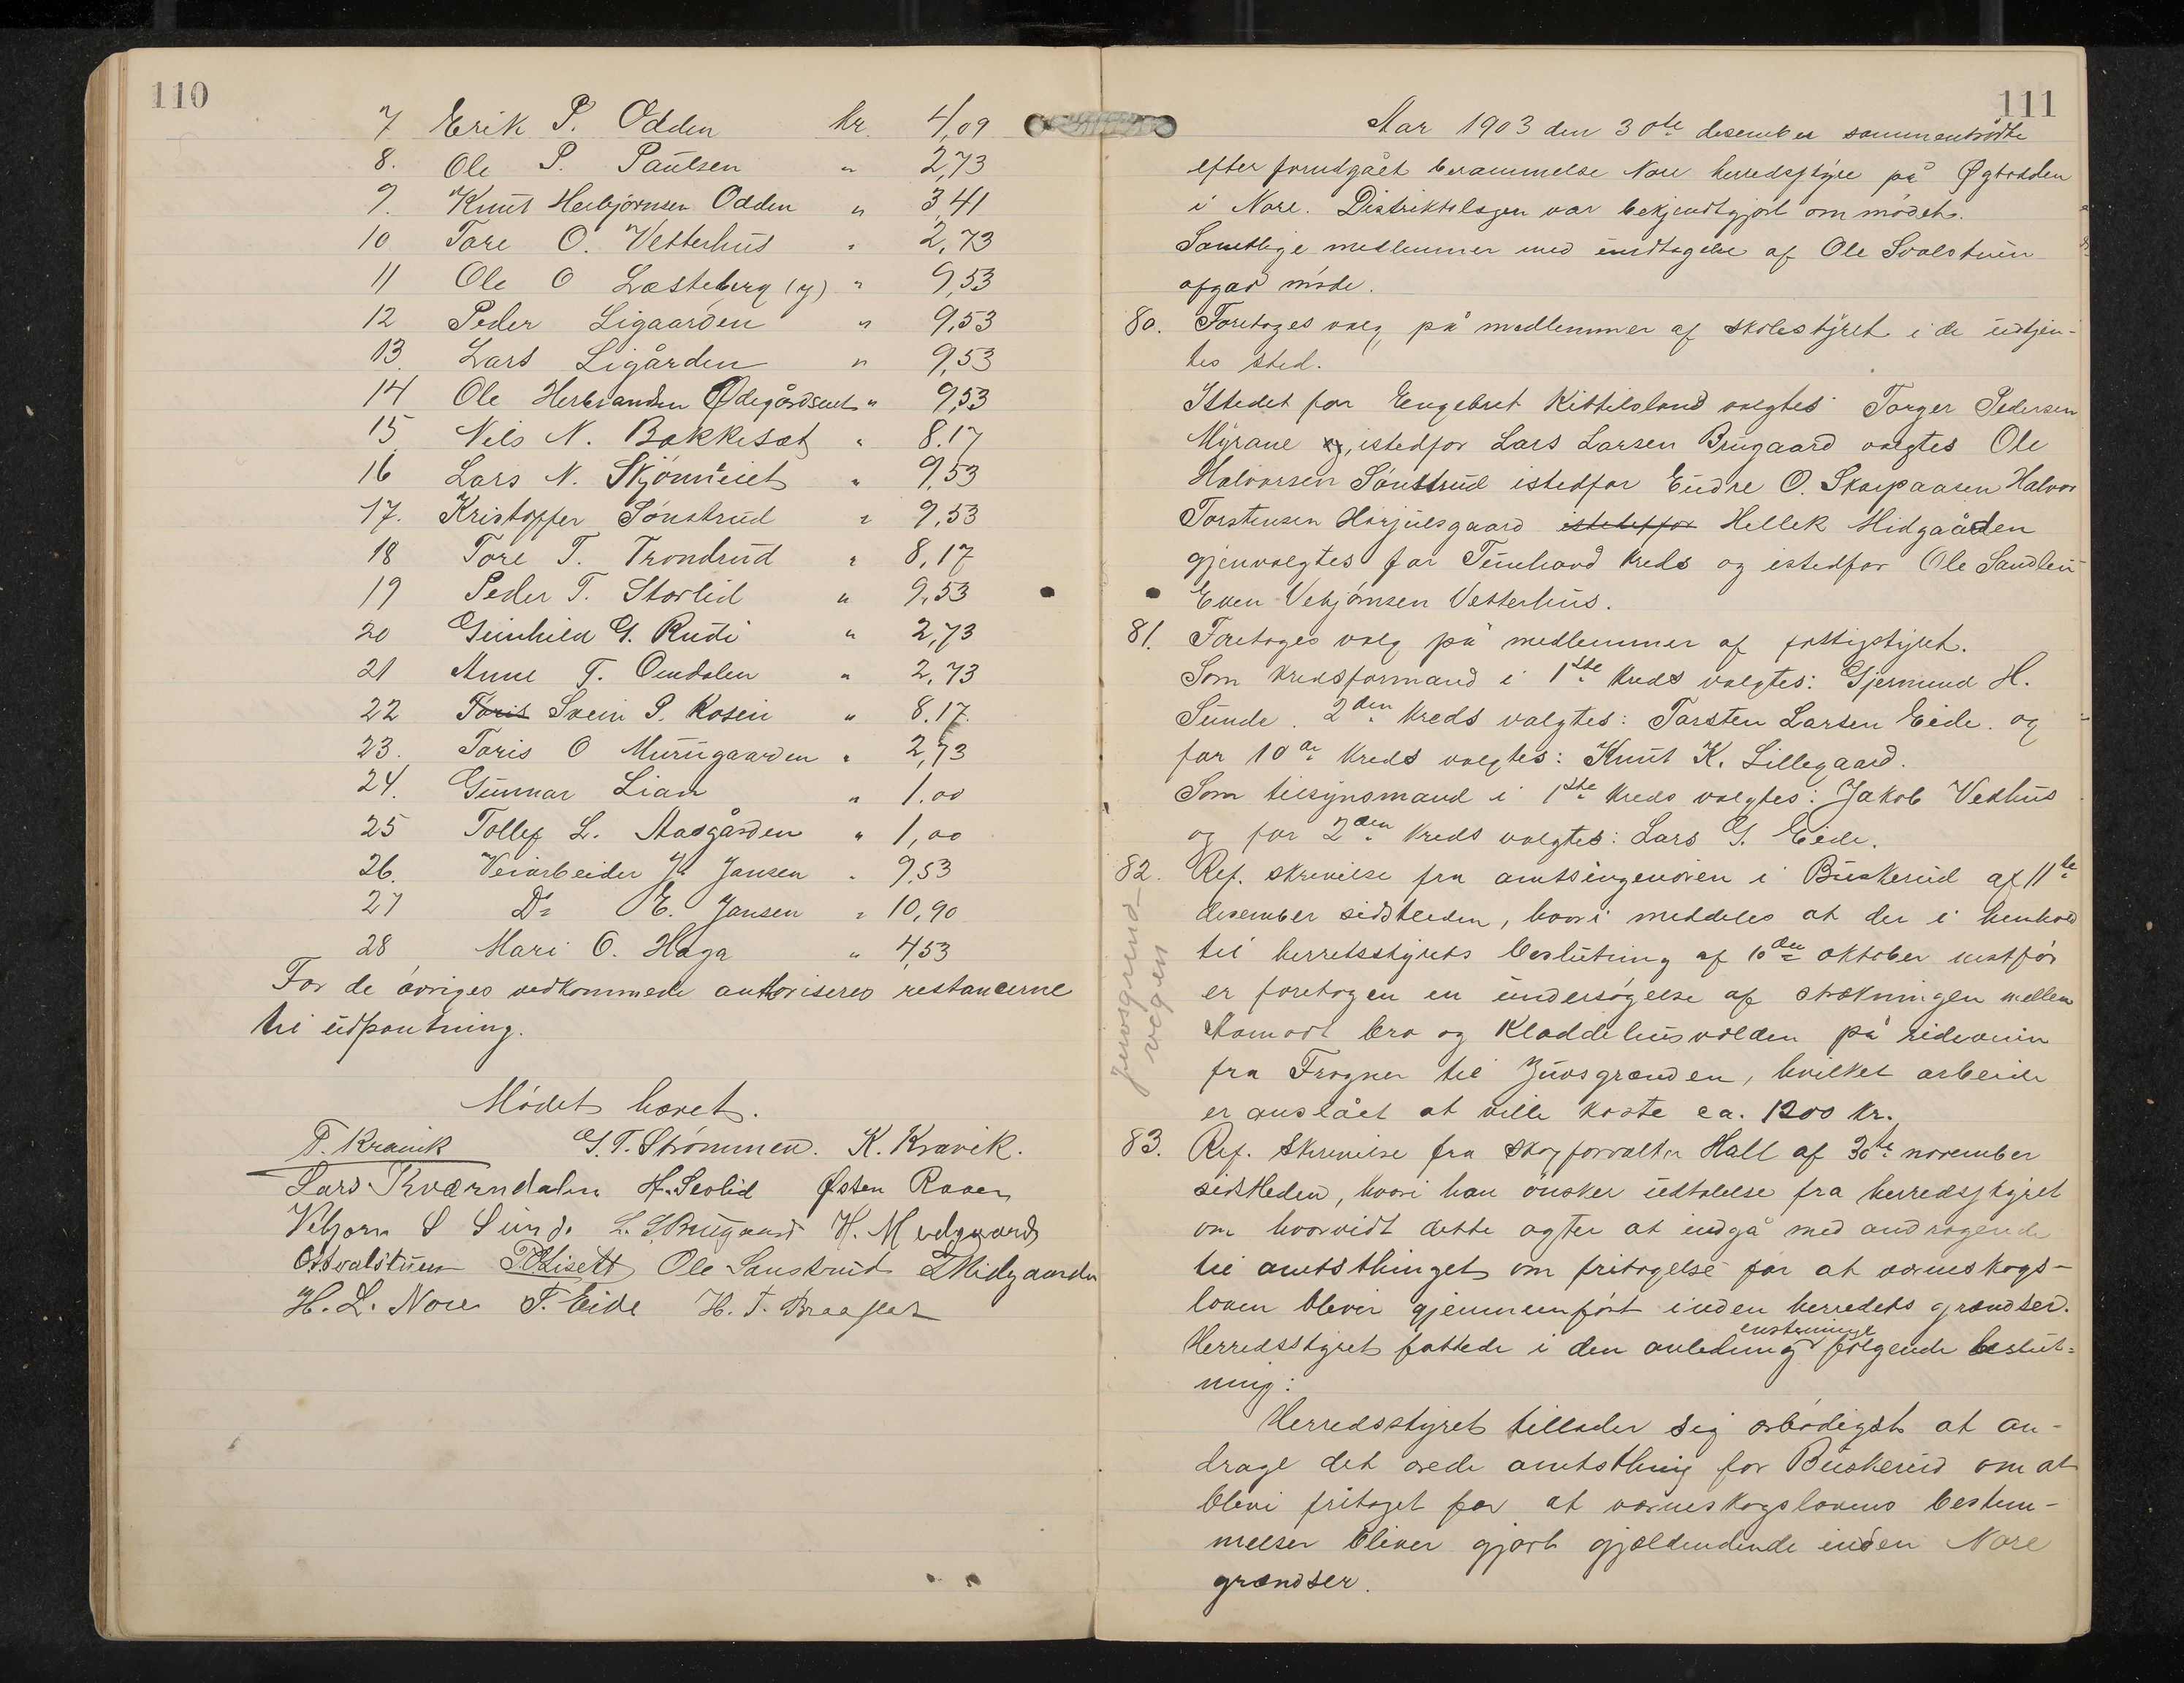 110
7 Erik P. Odden kr. 4,09
8. Ole P. Paulsen " 2,73
9. Knut Herbjørnsen Odden " 3,41
10 Tore O. Vetterhus " 2,73
11 Ole O Læsteberg (y) " 9,53
12 Peder Ligaarden " 9,53
13. Lars Ligården " 9,53
14 Ole Herbrandsen Ødegårdseiet " 9,53
15 Nils N. Bakkesæt " 8.17
16 Lars N. Skjønneiet " 9,53
17. Kristoffer Sønstrud " 9,53
18 Tore T. Trondrud " 8,17
19 Peder T. Storlid " 9,53
20 Gunhild G. Rudi " 2,73
21 Anne T. Omdalen " 2,73
22 Toris Svein P. Kosein " 8.17
23. Toris O Murugaarden " 2,73
24. Gunnar Lian " 1.00
25 Tollef L. Aasgården " 1,00
26. Veiarbeider J. Jansen " 9,53
27 Do E. Jansen " 10,90
28 Mari O. Haga " 4,53
For de øvriges vedkommende authoriseres restancerne
til udpantning.
Mødet hævet.
T. Kravik G. T. Strømmen. K. Kravik.
Lars Kværndalen H. Seolid Østen Raaen
Vebjørn S Sund. L. L. Brugaard H. Medgaard
O Svalstuen Ole Sønstrud E Midgaarden
H. L. Nore T. Eide H. T. Braaflat
111
Aar 1903 den 30te desember sammentrådte
efter forudgået berammelse Nore herredsstyre på Øgtodden
i Nore. Distriktslægen var bekjendtgjort om mødet.
Samtlige medlemmer med undtagelse af Ole Svalstuen
afgav møde.
80. Foretoges valg på medlemmer af skolestyret i de udtjen-
tes sted.
Istedet for Engebret Kittilsland valgtes Torger Pedersen
Myrane og, istedfor Lars Larsen Brugaard valgtes Ole
Halvorsen Sønstrud istedfor Endre O. Skarpaasen Halvor
Torstensen Harjulsgaard istedetfor Hellek Midgaarden
gjenvalgtes for Tunhovd kreds og istedfor Ole Sandlen
Even Vebjørnsen Vetterhus.
81. Foretoges valg på medlemmer af fattigstyret.
Som kredsformand i 1ste kreds valgtes: Gjermund H.
Sunde. 2den kreds valgtes: Torsten Larsen Eide. og
for 10de kreds valgtes: Knut K. Lillegaard.
Som tilsynsmand i 1ste kreds valgtes: Jakob Vedhus
og for 2den kreds valgtes: Lars G. Eide.
82. Ref. skrivelse fra amtsingeniøren i Buskerud af 11te
desember sidstleden, hvori meddeles at der i henhold
til herretsstyrets beslutning af 10de oktober nestfør
er foretagen en undersøgelse af strækningen mellem
Aamodt bro og Kladdehusvolden på rideveien
fra Frogner til Juvsgrænden, hvilket arbeide
er anslået at ville koste ca. 1200 kr.
Juvsgrend-
vegen
83. Ref. Skrivelse fra skogforvalter Hall af 30te november
sidstleden, hvori han ønsker udtalelse fra herredsstyret
om hvorvidt dette agter at indgå med andragende
til amtsthinget om fritagelse for at værneskogs-
loven blever gjennemført inden herredets grændser.
Herredsstyret fattede i den anledning enstemmige følgende beslut-
ning:
Herredsstyret tillader sig ærbødigst at an-
drage det ærede amtsthing for Buskerud om at
blive fritaget for at værneskogslovens bestem-
melser bliver gjort gjældendende inden Nore
grændser.